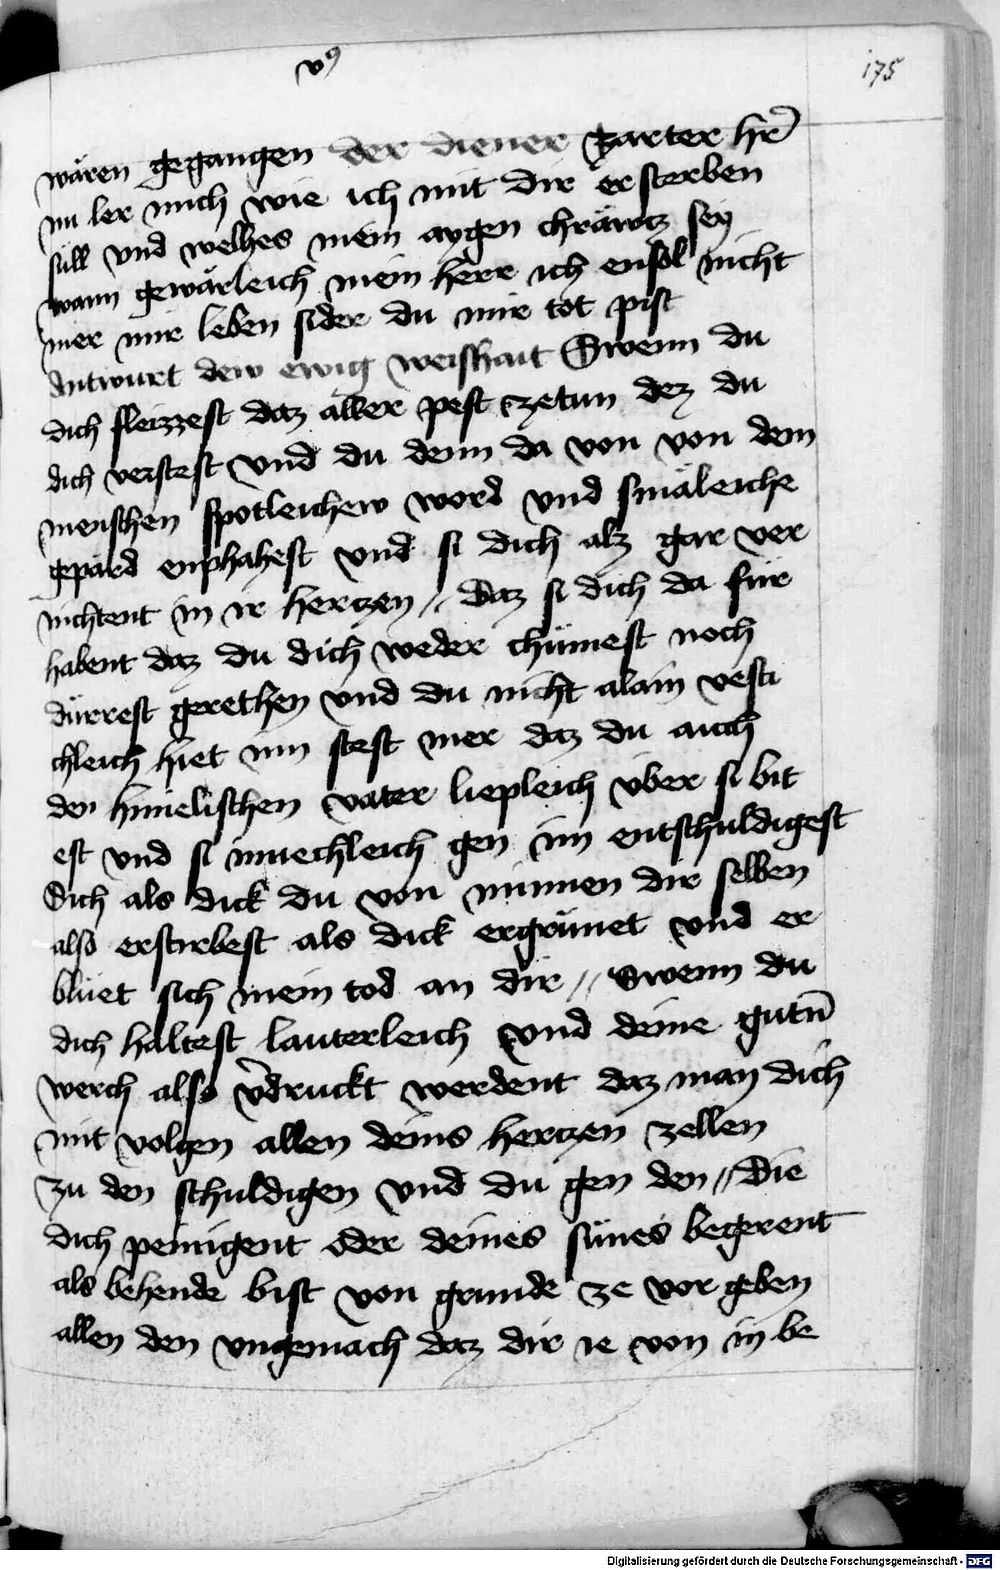 v⁹
175
wären gegangen der diener zarter hr̄
nu ler mich wie ich mit dir ersterben
süll vnd welhes mein aygen chräwtz sey
wann gewärleich mein herr ich ensol nicht
mer mir leben sider du mir tot pist
Antwurt dew ewig weishait Swenn du
dich fleizzest daz aller pest zetun dez du
dich verstest vnd du denn da von von dem
menschen spotleichew word vnd smäleiche
gepärd enphahest vnd si dich alz gar ver
nichtent in ir hertzen // Daz si dich da für
habent daz du dich weder chünnest noch
dürrest gerethen vnd du nicht alain vesti
chleich hiet inn stest mer daz du auch
den himelischen vater liepleich vber si bit
est vnd si inuechleich gen im entschuldigest
Sich als dick du von minnen dir selben
also erstirbest als dick ergrünet vnd er
blüet sich mein tod an dir // Swenn du
dich haltest lauterleich vnd deine gutū
werch also v̄druckt werdent daz man dich
mit volgen allen deins hertzen zellen
zu den schuldigen vnd du gen den // Die
dich peinigent oder deines sünes begerent
als behende bist von grunde ze vor geben
allen den vngemach daz dir ie von in be
Digitalisierung gefördert durch die Deutsche Forschungsgemeinschaft - DFG